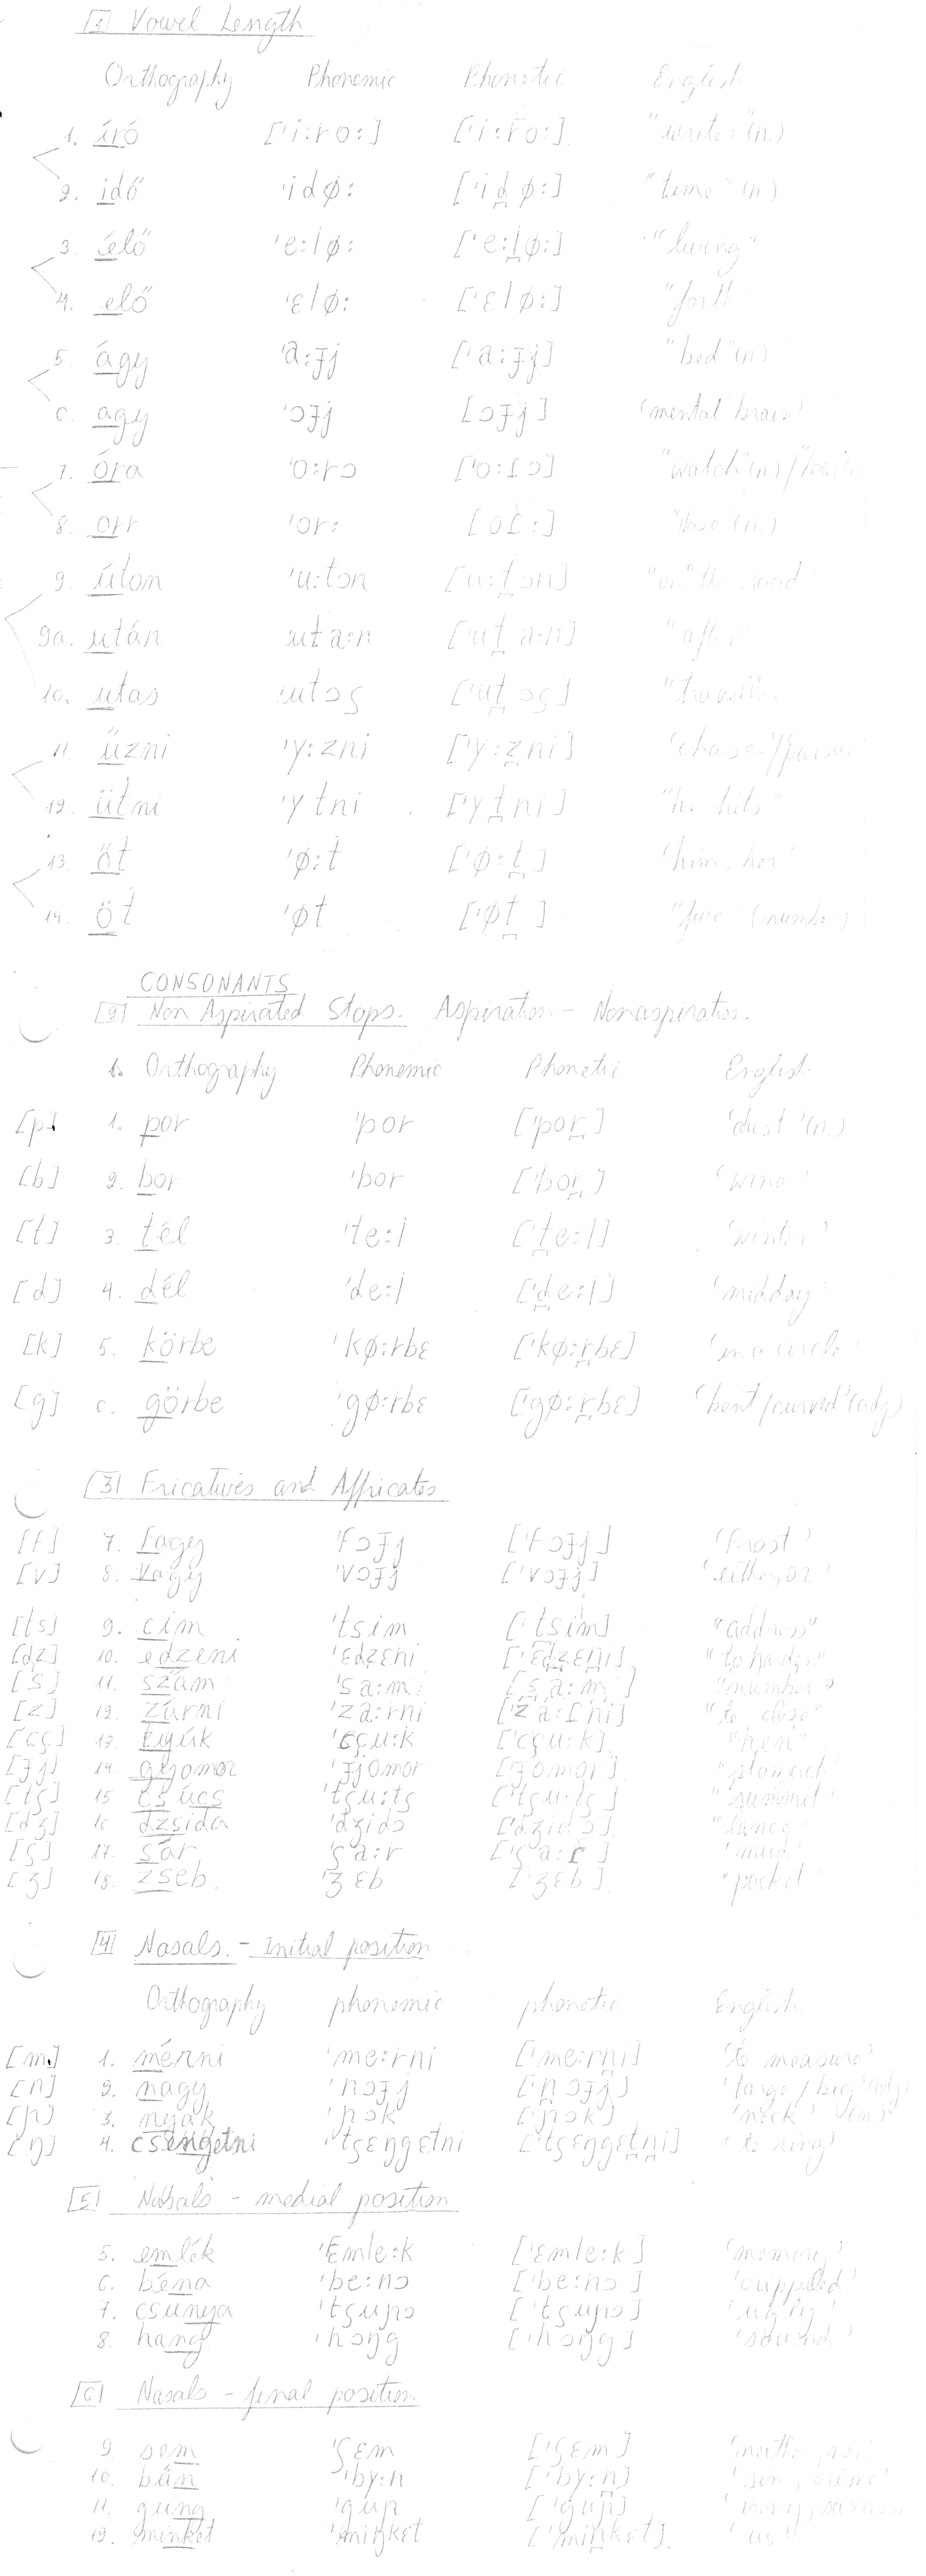 [1] Vowel Length
Orthography Phonemic Phonetic English
1. író ['i:ro:] ['i:ro:] "writer" (n.)
2. idő 'idø: ['id̪ø:] "time" (n)
3. élő 'e:lø: ['e:l̪ø:] "living"
4. elő 'ɛlø: ['ɛlø:] "forth"
5. ágy 'a:ɟj ['a:ɟj] "bed" (n)
6. agy 'ɔɟj [ɔɟj] (mental brain)
7. óra 'o:rɔ ['o:ɾɔ] "watch" (n) /
8. orr 'or: [oɾ:] "nose" (n.)
9. úton 'u:ton [u:t̪on] "on" the road
9a. után uta:n ['ut̪a:n]
10. utas 'utɔʂ ['ut̪ɔʂ]
11. űzni 'y:zni ['y:z̪ni]
12. ütni 'ytni ['yt̪ni] "he hits"
13. őt 'ø:t ['ø:t̪] 'him, her'
14. öt 'øt ['øt̪] "five (number)
CONSONANTS
[2] Non Aspirated Stops. Aspiration - Nonaspiration.
Orthography Phonemic Phonetic English
[p] 1. por 'por ['por̪] 'dust' (n.)
[b] 2. bor 'bor ['bor̪] 'wine'
[t] 3. tél 'te:l ['t̪e:l] 'winter'
[d] 4. dél 'de:l ['d̪e:l] 'midday'
[k] 5. körbe 'kø:rbɛ ['kø:r̪bɛ] 'in a circle'
[g] 6. görbe 'gø:rbɛ ['gø:r̪bɛ] 'bent/curved' (adj)
[3] Fricatives and Affricates
[f] 7. fagy 'fɔɟj ['fɔɟj] 'Frost'
[v] 8. vagy 'vɔɟj ['vɔɟj] 'either, or'
[ts] 9. cím 'tsim ['tsim] "address"
[dz] 10. edzeni 'ɛdzɛni ['ɛd̪zɛn̪i] "to harden"
[s] 11. szám 'sa:m ['s̪a:m] "number"
[z] 12. zárni 'za:rni ['z̪a:ɾn̪i] "to close"
[cç] 13. tyúk 'cçu:k ['cçu:k] "hen"
[ɟj] 14. gyomor 'ɟjomor [ɟomor] "stomach"
[tʂ] 15. csúcs 'tʂu:tʂ ['tʂu:tʂ] "summit"
[dʒ] 16. dzsida 'dʒidɔ ['dʒidɔ] "lance"
[ʂ] 17. sár 'ʂa:r ['ʂa:ɾ] 'mud'
[ʒ] 18. zseb 'ʒɛb ['ʒɛb] "pocket"
[4] Nasals. - Initial position
Orthography phonemic phonetic English
[m] 1. mérni 'me:rni ['me:rn̪i] 'to measure'
[n] 2. nagy 'nɔɟj ['n̪ɔɟj] 'large/big' (adj)
[ɲ] 3. nyak 'ɲɔk ['ɲɔk] 'neck' (n)
[ŋ] 4. csengetni 'tʂɛŋgɛtni ['tʂɛŋgɛt̪n̪i] 'to ring'
[5] Nasals - medial position
5. emlék 'ɛmle:k ['ɛmle:k] 'memory'
6. béna 'be:nɔ ['be:nɔ] 'crippled'
7. csunya 'tʂuɲɔ ['tʂuɲɔ] 'ugly'
8. hang 'hɔŋg ['hɔŋg] 'sound'
[6] Nasals - final position
9. sem 'ʂɛm ['ʂɛm]
10. bűn 'by:n ['by:n̪] 'sin, crime'
11. guny 'guɲ ['guɲ]
12. minket 'miŋkɛt ['miŋkɛt] 'us'